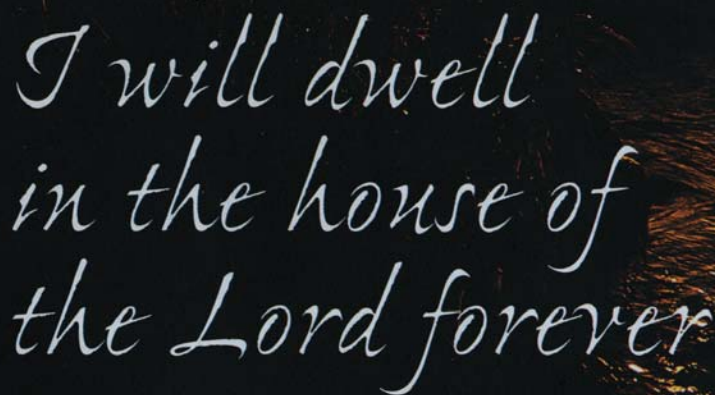 I will dwell
in the house of
the Lord forever